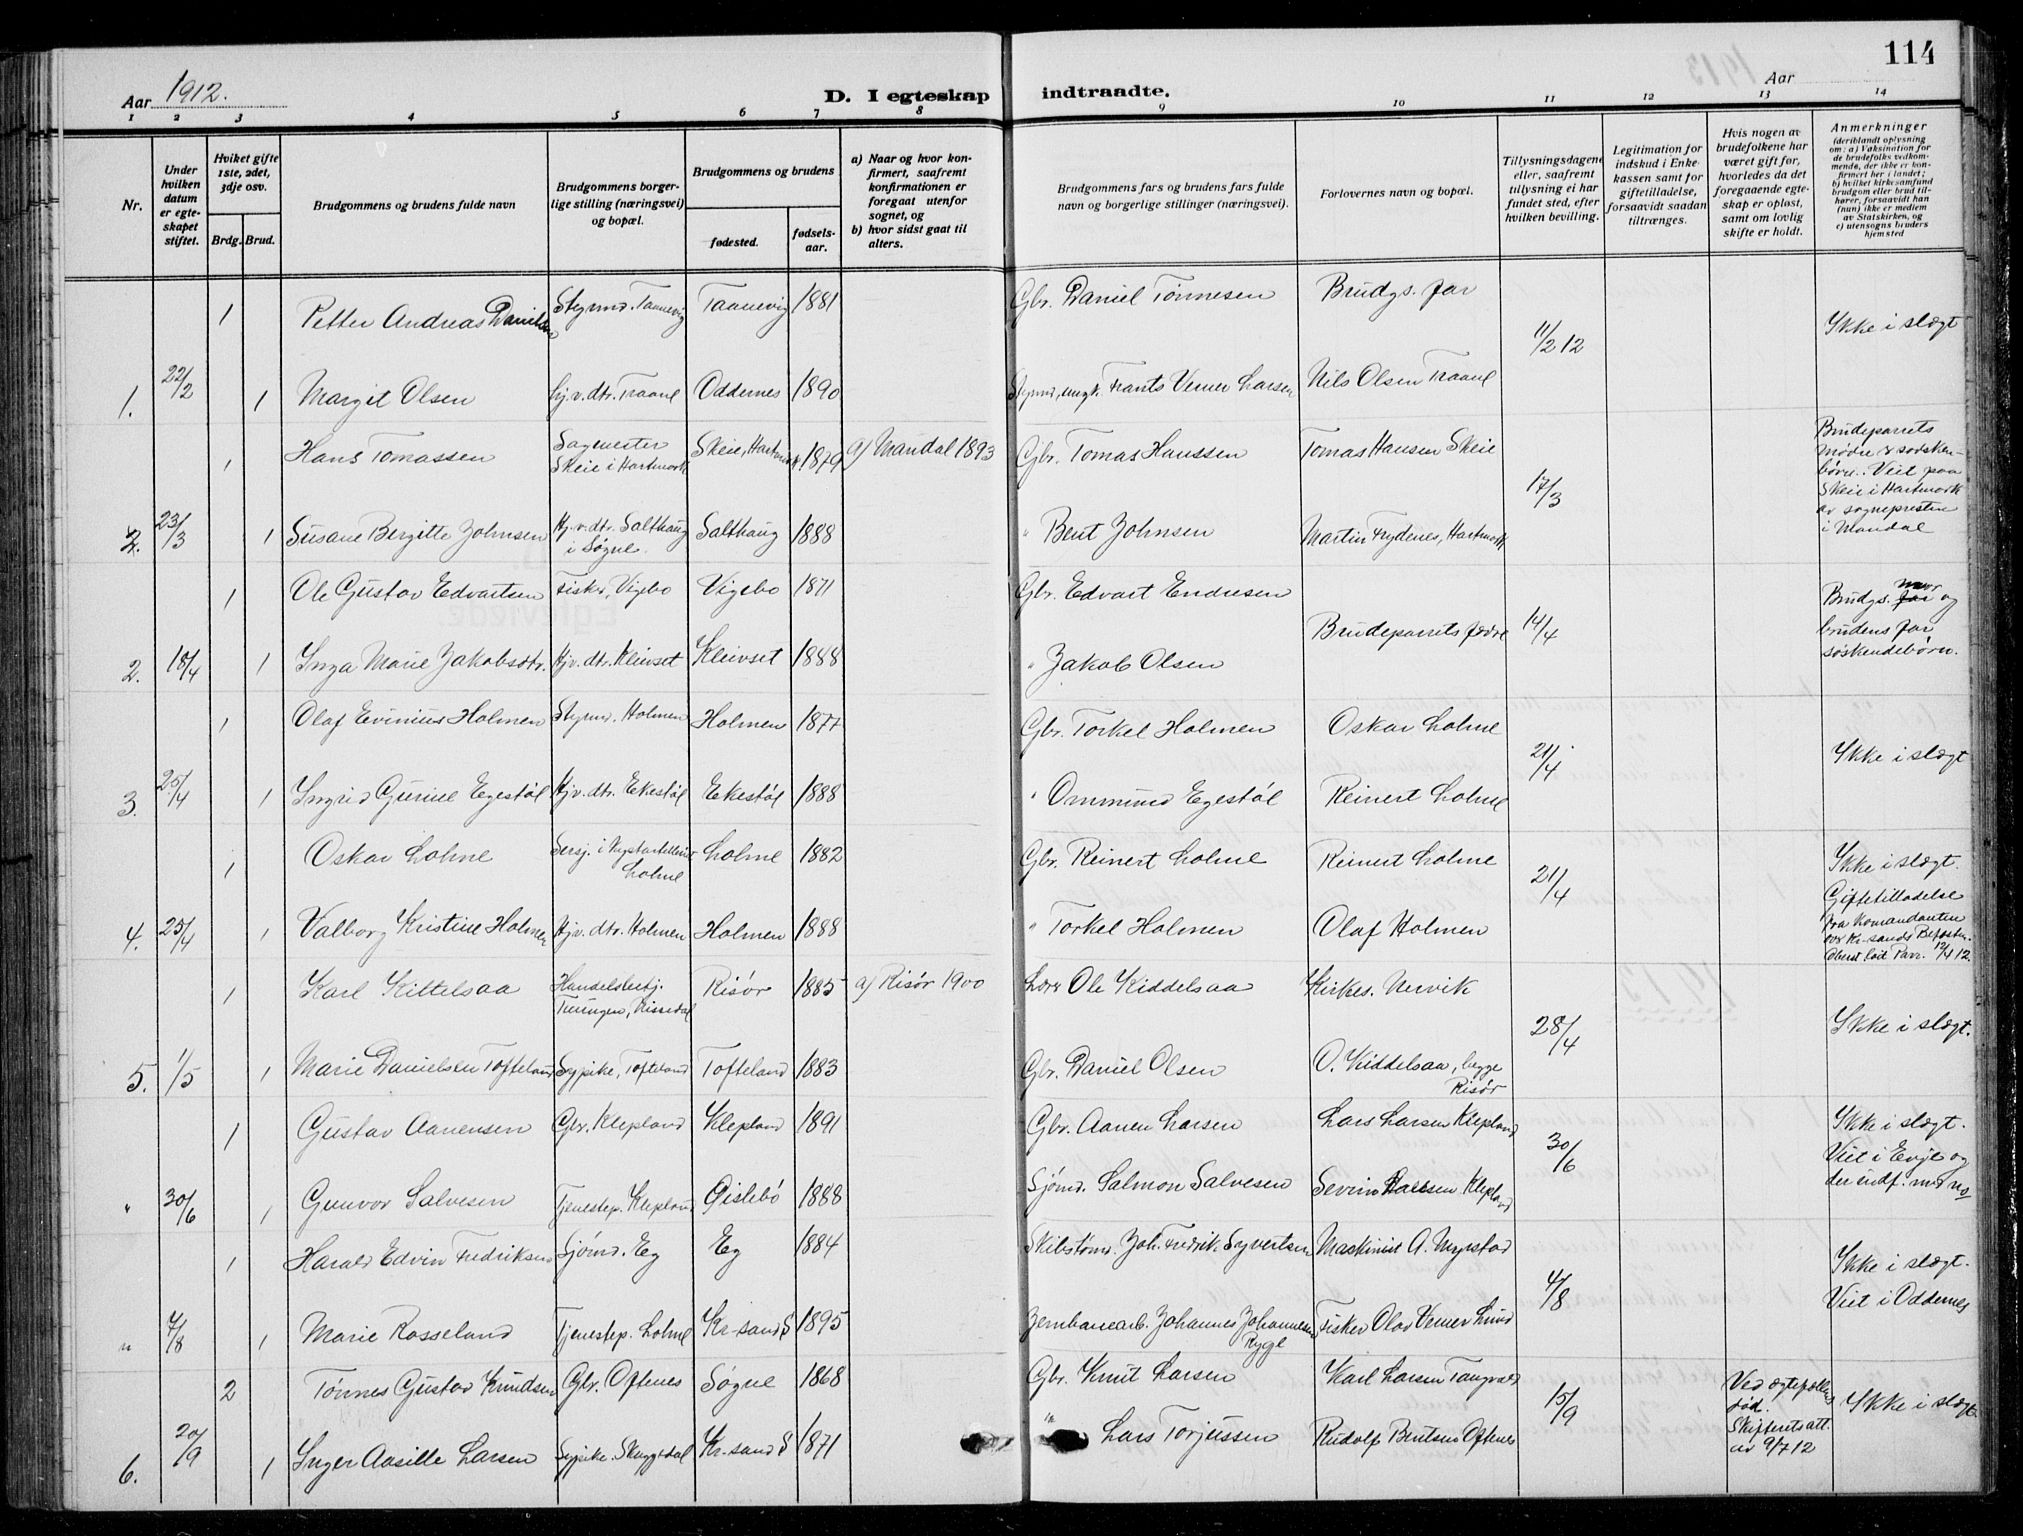 114
Aar 1912.
D. I egteskap indtraadte.
Aar
1 2 3 4 5 6 7 8 9 10 11 12 13 14
Nr.
Under hvilken datum er egteskapet stiftet.
Hviket gifte 1ste, 2det, 3dje osv.
Brdg. Brud.
Brudgommens og brudens fulde navn
Brudgommens borgerlige stilling (næringsvei) og bopæl.
Brudgommens og brudens
fødested.
fødselsaar.
a) Naar og hvor konfirmert, saafremt konfirmationen er foregaat utenfor sognet, og
b) hvor sidst gaat til alters.
Brudgommens fars og brudens fars fulde navn og borgerlige stillinger (næringsvei).
Forlovernes navn og bopæl.
Tillysningsdagene eller, saafremt tillysning ei har fundet sted, efter hvilken bevilling.
Legitimation for indskud i Enkekassen samt for giftetilladelse, forsaavidt saadan tiltrænges.
Hvis nogen av brudefolkene har været gift før, hvorledes da det foregaaende egteskap er opløst, samt om lovlig skifte er holdt.
Anmerkninger (deriblandt oplysning om: a) Vaksination for de brudefolks vedkommende, der ikke er konfirmert her i landet; b) hvilket kirkesamfund brudgom eller brud tilhører, forsaavidt han (hun) ikke er medlem av Statskirken, og c) utensogns bruders hjemsted
1 Petter Andreas Danielsen Styrmd. Taanevig Taanevig 1881 Gbr. Daniel Tönnesen Brudgs. far 11/2 12 Ikke i slægt
1. 22/2 1 Margit Olsen hj.v.dtr. Traane Oddernes 1890 Frants Verner Larsen Nils Olsen Traane
1 Hans Tomassen Sagmester Skeie i Hartmork Skeie, Hartmork 1879 a) Mandal 1893 Gbr. Tomas Hanssen Tomas Hansen Skeie 17/3 Brudeparrets mødre er sødskenbörn. Viet paa Skeie i Hartmork av sognepresten i Mandal
2. 23/3 1 Susane Bergitte Johnsen Hj.v.dtr. Salthaug i Søgne. Salthaug 1888 " Bent Johnsen Martin Frydenes, Hartmork
1 Ole Gustav Edvartsen Fisker, Vigebo Vigebo 1871 Gbr. Edvart Endresen Brudeparrets fædre 14/4 Brudgs. mor og brudens far søskendebörn.
2. 18/4 1 Inga Marie Jakobsdtr. Hjv. dtr. Kleivset Kleivset 1888 " Jakob Olsen
1 Olaf Evinius Holmen Styrmd. Holmen Holmen 1877 Gbr. Torkel Holmen Oskar Lohne 21/4 Ikke i slægt
3. 25/4 1 Ingrid Gurine Egestøl Hjv. dtr. Ekestøl Ekestøl 1888 " Ommund Egestøl Reinert Lohne
1 Oskar Lohne Sersj. i Kystartilleriet Lohne Lohne 1882 Gbr. Reinert Lohne Reinert Lohne 21/4 Ikke i slægt. Giftetilladelse fra Komandanten over Kr-sands Befæstn. 12/4 12.
4. 25/4 1 Valborg Kristine Holmen Hjv. dtr. Holmen Holmen 1888 " Torkel Holmen Olaf Holmen
1 Karl Kittelsaa Handelsbetj. Rissedal Risör 1885 a) Risör 1900 Lærer Ole Kiddelsaa Kirkes. Nervik 28/4 Ikke i slægt.
5. 1/5 1 Marie Danielsen Tofteland Sypike, Tofteland Tofteland 1883 Gbr. Daniel Olsen O. Kiddelsaa, begge Risør
1 Gustav Aanensen Gbr. Klepland Klepland 1891 Gbr. Aanen Larsen Lars Larsen Klepland 30/6 Ikke i slægt. Viet i Evje og der indf. med no
" 30/6 1 Gunvor Salvesen Tjenestep. Klepland Øislebö 1888 Sjömd. Salmon Salvesen Severin Larsen Klepland
1 Harald Edvin Fredriksen Sjömd. Eg Eg 1884 Skibstømd. Joh. Fredrik Syvertsen Maskinist A. Myrstad 4/8 Ikke i slægt. Viet i Oddernes
" 4/8 1 Marie Rosseland Tjenestep. Lohne Kr-sand S 1895 Jernbanearb. Johannes Johannesen Rygge Fisker Olav Verner Lund
2 Tönnes Gustav Knudsen Gbr. Oftenes Søgne 1868 Gbr. Knut Larsen Karl Larsen Tangvald 15/9 Ved ægtefællens død. Skifterets att. av 9/7 12 Ikke i slægt
6. 20/9 1 Inger Aasille Larsen Sypike. Skuggedal Kr-sand S 1871 " Lars Torjussen Rudolf Bentsen Oftenes